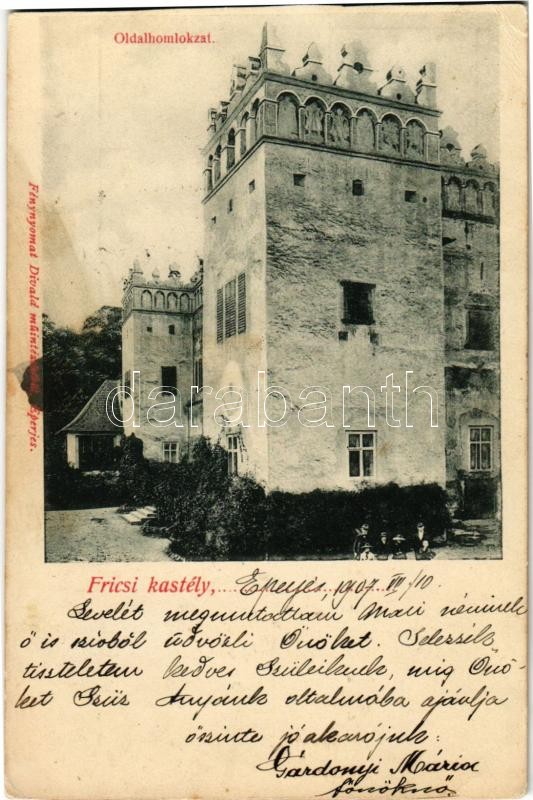 Oldalhomlokzat.
Fénynyomat Divald műintéz Eperjes.
darabanth
Fricsi kastély, Eperjes 1907 VII/10
Levelét megmutattam Mari néninek
ő is szivből üdvözli Önöket. Jelezzék
tiszteletem kedves Szüleiknek, mig Önö-
ket Szűz Anyánk oltalmába ajánlja
őszinte jóakarójuk:
Gárdonyi Mária
főnöknő